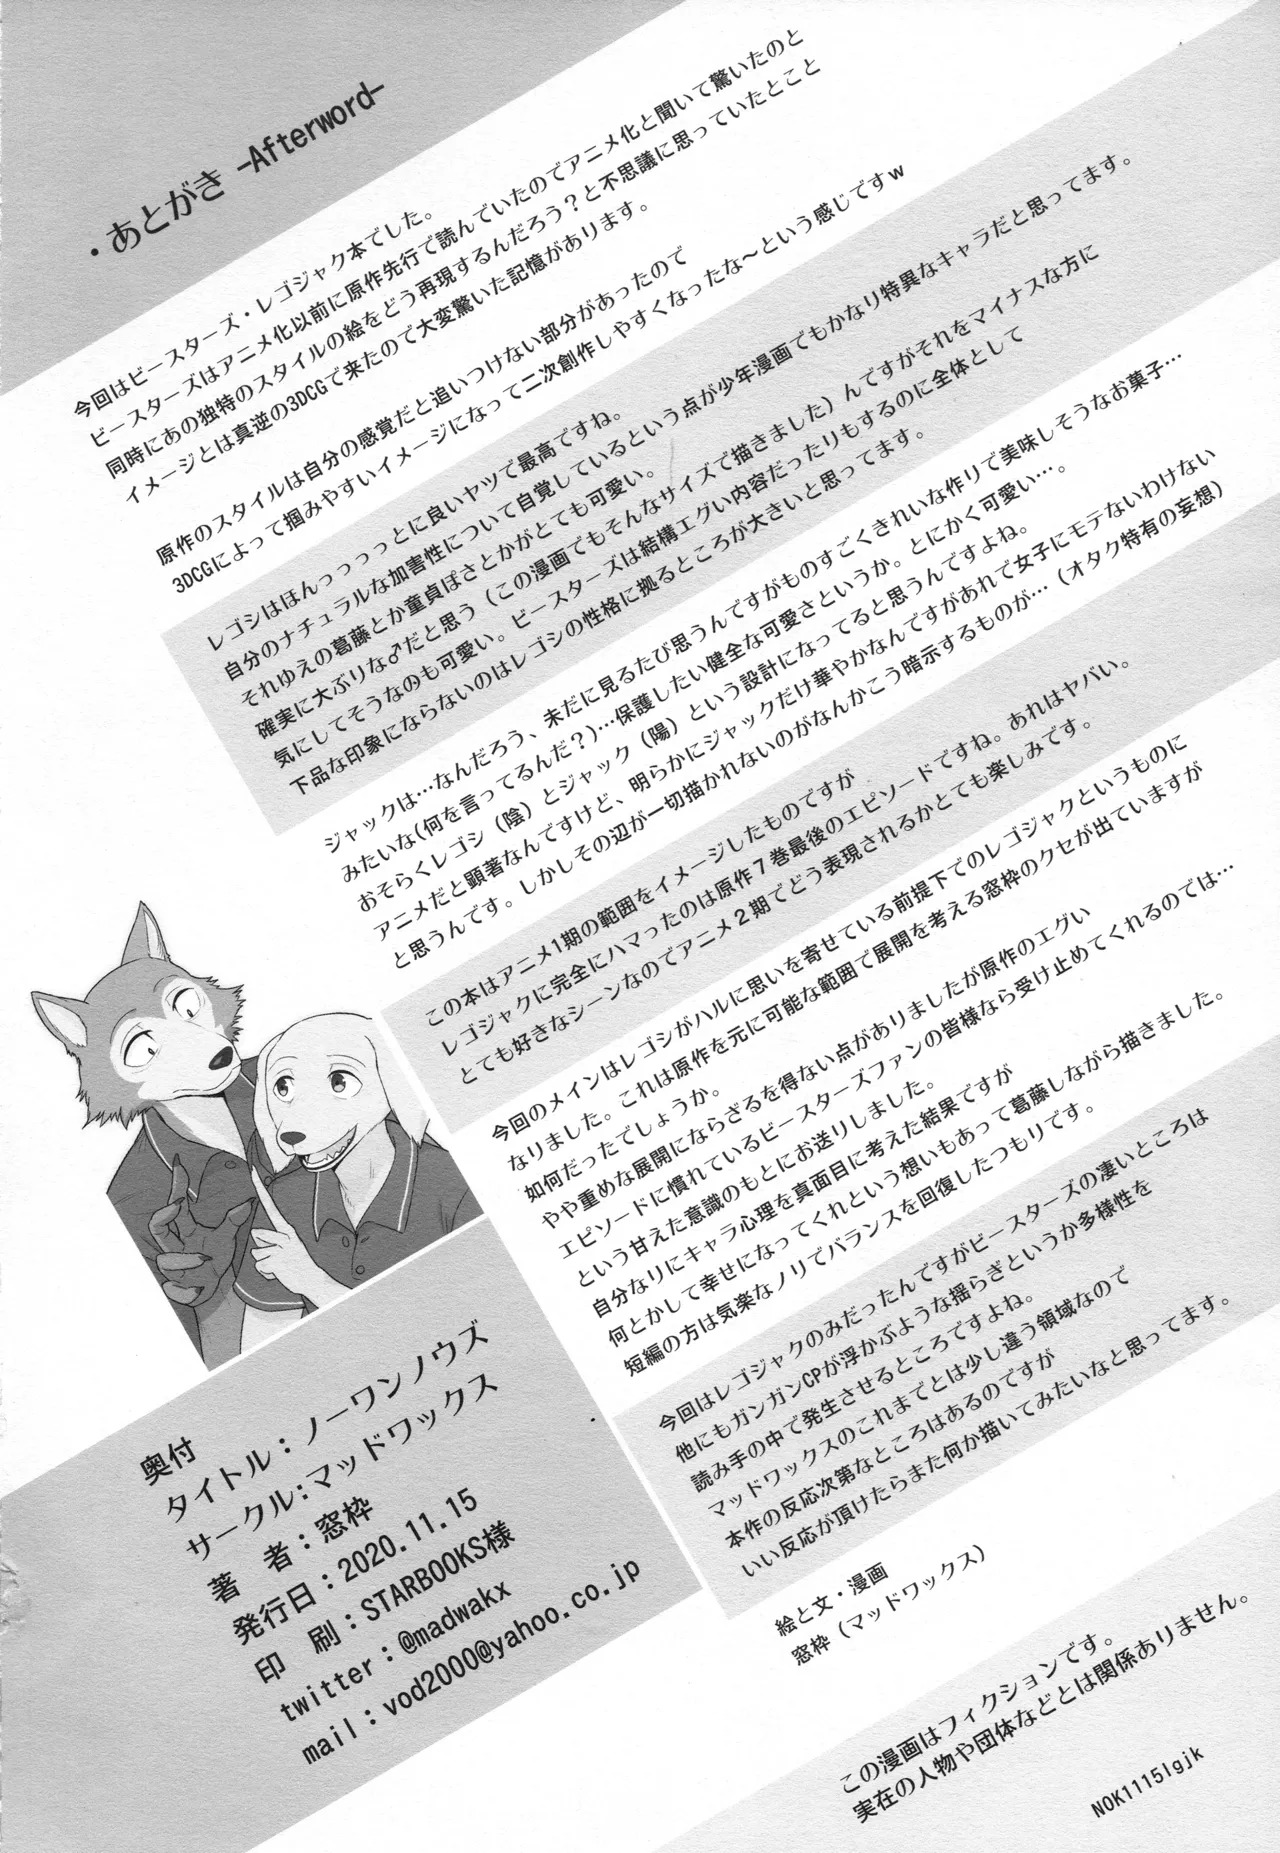 ・あとがき -Afterword-
今回はビースターズ・レゴジャク本でした。
ビースターズはアニメ化以前に原作先行で読んでいたのでアニメ化と聞いて驚いたのと
同時にあの独特のスタイルの絵をどう再現するんだろう？と不思議に思っていたとこと
イメージとは真逆の3DCGで来たので大変驚いた記憶があります。
原作のスタイルは自分の感覚だと追いつけない部分があったので
3DCGによって掴みやすいイメージになって二次創作しやすくなったな～という感じですw
レゴシはほんっっっっとに良いヤツで最高ですね。
自分のナチュラルな加害性について自覚しているという点が少年漫画でもかなり特異なキャラだと思ってます。
それゆえの葛藤とか童貞ぽさとかがとても可愛い。
確実に大ぶりな♂だと思う（この漫画でもそんなサイズで描きました）んですがそれをマイナスな方に
気にしてそうなのも可愛い。ビースターズは結構エグい内容だったりもするのに全体として
下品な印象にならないのはレゴシの性格に拠るところが大きいと思ってます。
ジャックは…なんだろう、未だに見るたび思うんですがものすごくきれいな作りで美味しそうなお菓子…
みたいな(何を言ってるんだ？)…保護したい健全な可愛さというか。とにかく可愛い…。
おそらくレゴシ（陰）とジャック（陽）という設計になってると思うんですよね。
アニメだと顕著なんですけど、明らかにジャックだけ華やかなんですがあれで女子にモテないわけない
と思うんです。しかしその辺が一切描かれないのがなんかこう暗示するものが…（オタク特有の妄想）
この本はアニメ1期の範囲をイメージしたものですが
レゴジャクに完全にハマったのは原作７巻最後のエピソードですね。あれはヤバい。
とても好きなシーンなのでアニメ２期でどう表現されるかとても楽しみです。
今回のメインはレゴシがハルに思いを寄せている前提下でのレゴジャクというものに
なりました。これは原作を元に可能な範囲で展開を考える窓枠のクセが出ていますが
如何だったでしょうか。
やや重めな展開にならざるを得ない点がありましたが原作のエグい
エピソードに慣れているビースターズファンの皆様なら受け止めてくれるのでは…
という甘えた意識のもとにお送りしました。
自分なりにキャラ心理を真面目に考えた結果ですが
何とかして幸せになってくれという想いもあって葛藤しながら描きました。
短編の方は気楽なノリでバランスを回復したつもりです。
今回はレゴジャクのみだったんですがビースターズの凄いところは
他にもガンガンCPが浮かぶような揺らぎというか多様性を
読み手の中で発生させるところですよね。
マッドワックスのこれまでとは少し違う領域なので
本作の反応次第なところはあるのですが
いい反応が頂けたらまた何か描いてみたいなと思ってます。
絵と文・漫画
窓枠（マッドワックス）
奥付
タイトル：ノーワンノウズ
サークル:マッドワックス
著　者：窓枠
発行日：2020.11.15
印　刷：STARBOOKS様
twitter：@madwakx
mail：vod2000@yahoo.co.jp
この漫画はフィクションです。
実在の人物や団体などとは関係ありません。
NOK1115lgjk